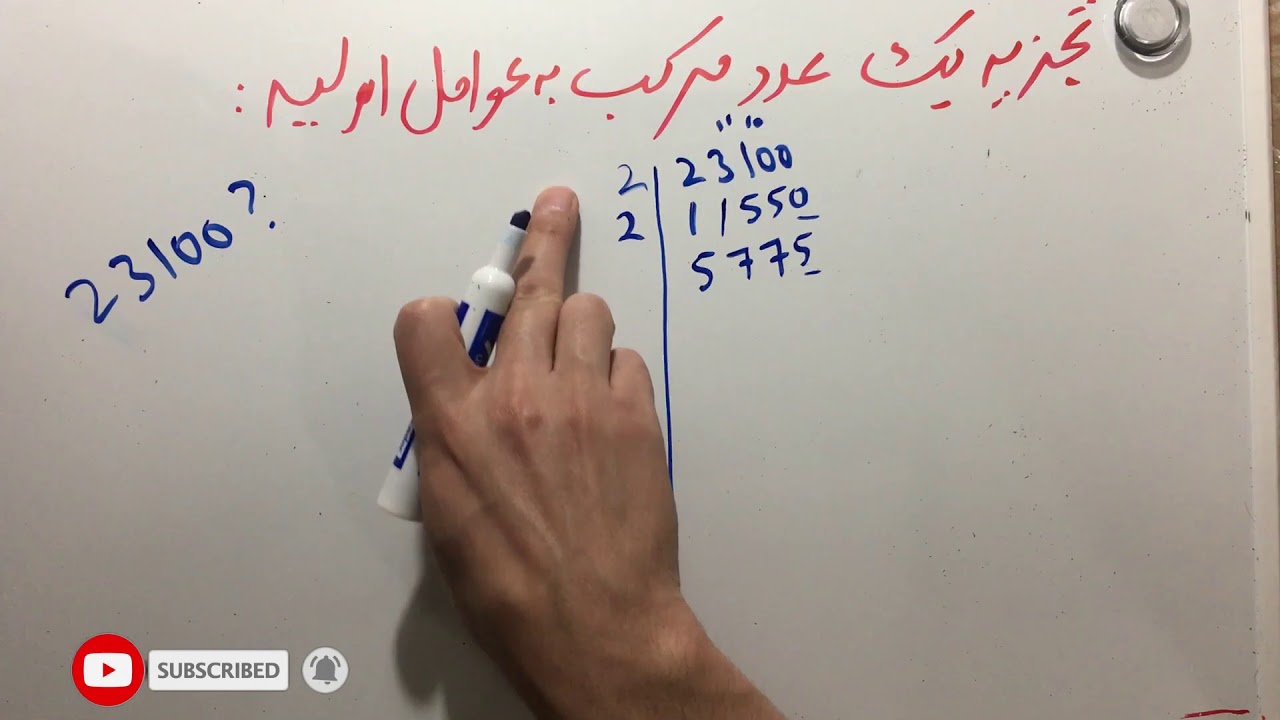 تجزیه یک عدد مرکب به عوامل اولیه :
23100?
2 | 23100
2 | 11550
5775
SUBSCRIBED